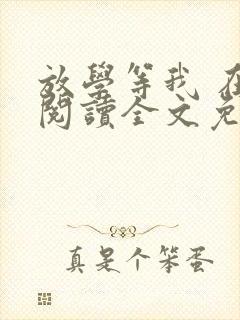 放學等我 在
閱讀全文免
真是个笨蛋